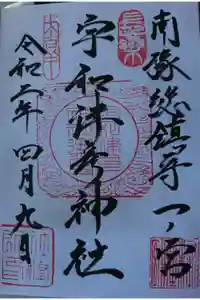 南豫総鎮守 一ノ宮
宇和津彦神社
令和二年四月九日